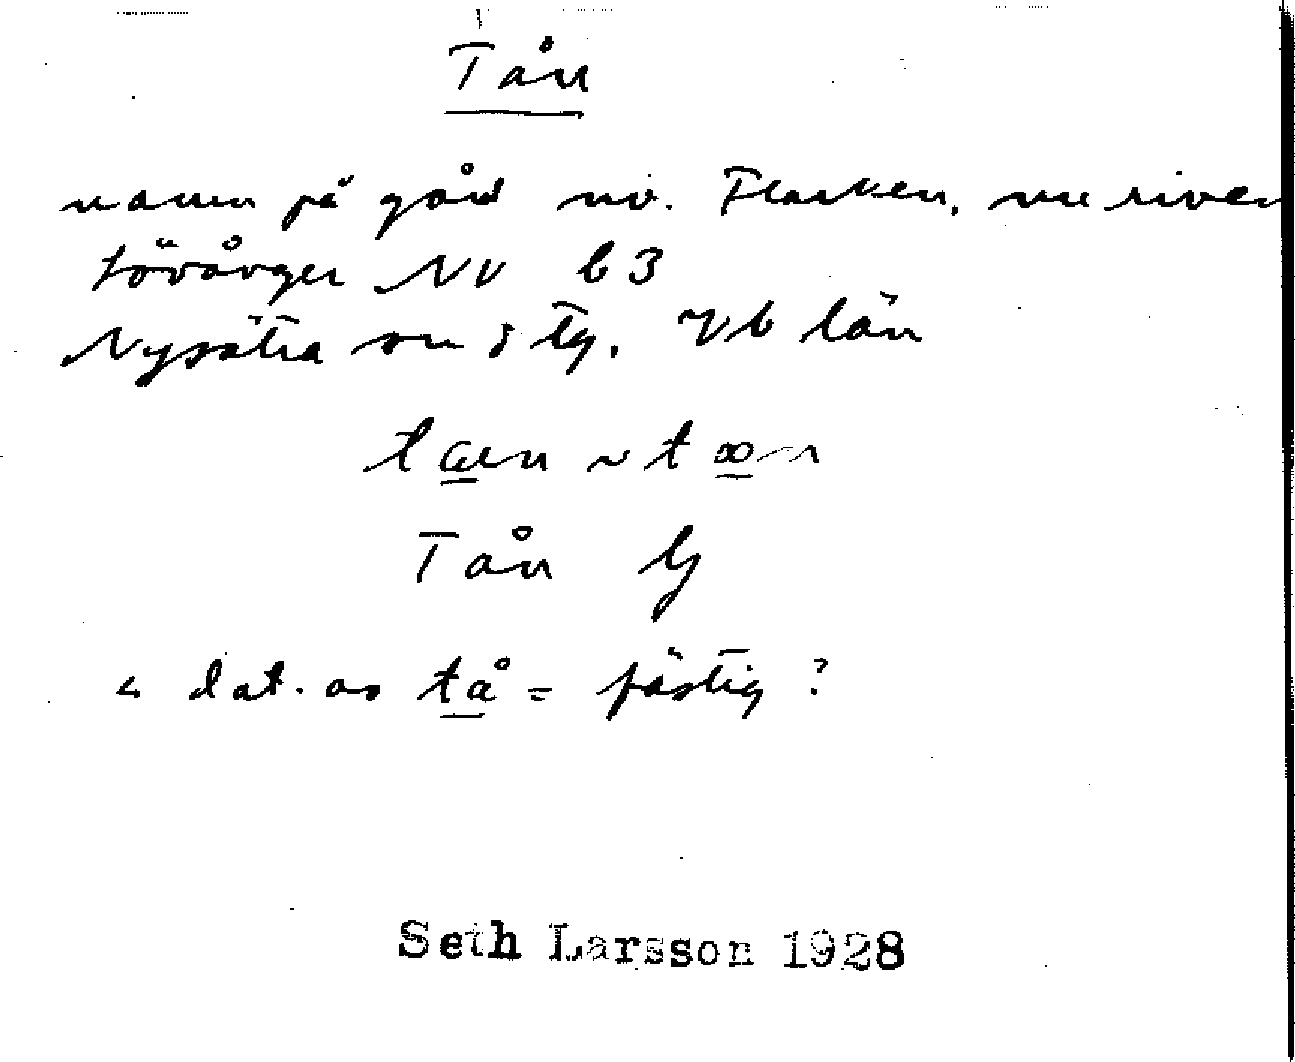 Tån
namn på gård nv. Flarken, nu riven
Lövånger NV b 3
Nysätra sn o tg. Vb län
Tån
< dat. av tå = fästig?
Seth Larsson 1928